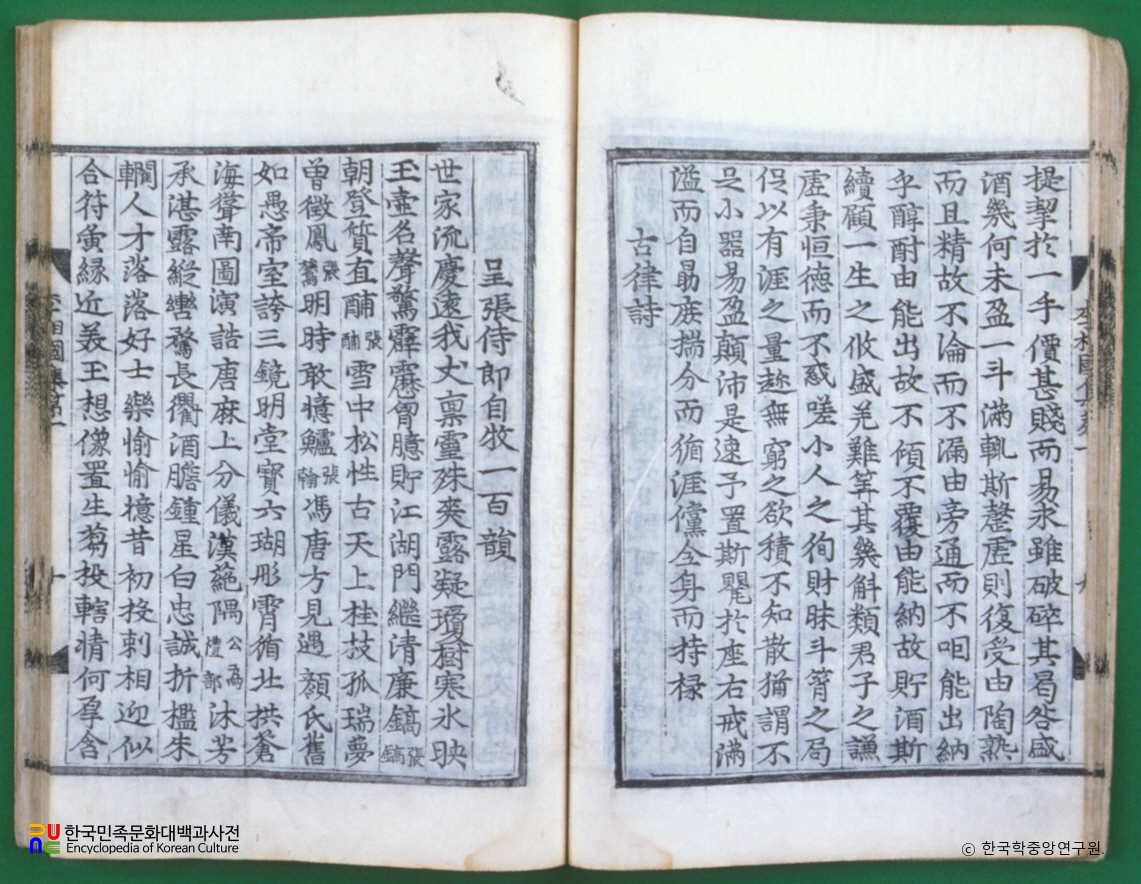 提挈於一手價甚賤而易求雖破碎其曷咎盛
酒幾何未盈一斗滿輒斯罄虛則復受由陶熟
而且精故不淪而不漏由旁通而不咽能出納
乎醇酎由能出故不傾不覆由能納故貯酒斯
續顧一生之攸盛羌難筭其幾斛類君子之謙
虛秉恒德而不惑嗟小人之徇財昧斗筲之局
促以有涯之量趂無窮之欲積不知散猶謂不
足小器易盈顚沛是速予置斯甖於座右戒滿
溢而自勗庶揣分而循涯儻全身而持祿
古律詩
呈張侍郎自牧一百韻
世家流慶遠我丈禀靈殊爽露凝瓊樹寒氷映
玉壺名聲驚霹靂胷臆貯江湖門繼清廉鎬張鎬
朝登質直酺張酺雪中松性古天上桂枝孤瑞夢
曾徵鳳張鷟明時敢憶鱸張翰馮唐方見遇顔氏舊
如愚帝室誇三鏡明堂寶六瑚彤霄循北拱蒼
海聳南圖演誥唐麻上分儀漢蕝隅公爲禮部沐芳
承湛露縱轡騖長衢酒膽鍾星白忠誠折檻朱
人才落落好士樂愉愉憶昔初投刺相迎似
合符夤緣近羙王想像置生芻投轄情何厚含
한국민족문화대백과사전
Encyclopedia of Korean Culture
ⓒ 한국학중앙연구원.